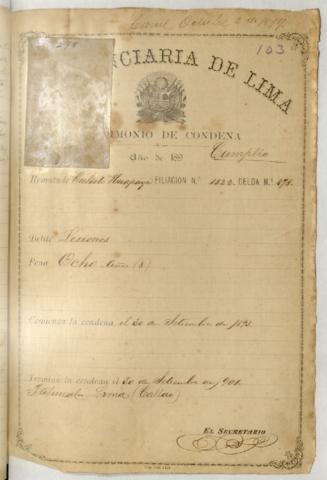 Carcel Octubre 2 de 1892
103
278
NCIARIA DE LIMA
IMONIO DE CONDENA
Año de 189
Cumplio
Rematado Huapaya FILIACION N.º 1522. CELDA N.º 278.
Delito Lesiones
Pena Ocho años (8)
Comienza la condena el 20 de Setiembre de 1893.
Termina la condena el 20 de Setiembre de 901.
Tribunal Lima (Callao)
EL SECRETARIO